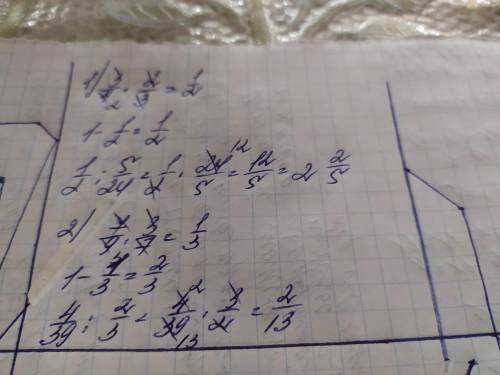 1) 3/4 · 2/3 = 1/2
1 - 1/2 = 1/2
1/2 : 5/24 = 1/2 · 24/5 12 = 12/5 = 2 2/5
2) 7/9 · 3/7 = 1/3
1 - 1/3 = 2/3
4/39 : 2/3 = 4/39 2 13 · 3/2 = 2/13